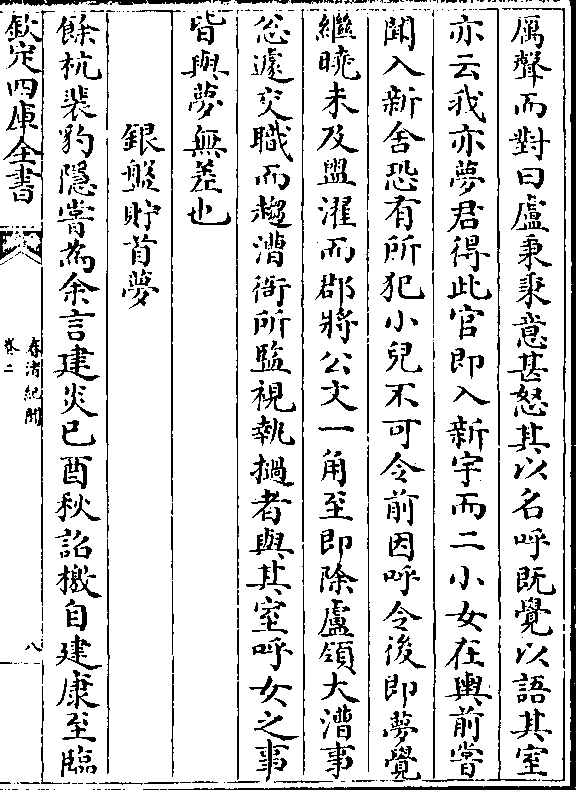 厲聲而對曰盧秉秉意甚怒其以名呼既覺以語其室
亦云我亦夢君得此官即入新宇而二小女在輿前嘗
聞入新舍恐有所犯小兒不可令前因呼令後即夢覺
繼曉未及盥濯而郡將公文一角至即除盧領大漕事
忩遽交職而趨漕衙所監視執撾者與其室呼女之事
皆與夢無差也
銀盤貯首夢
餘杭裴豹隱嘗為余言建炎已酉秋詔檄自建康至臨
欽定四庫全書
春渚紀聞
卷二
八